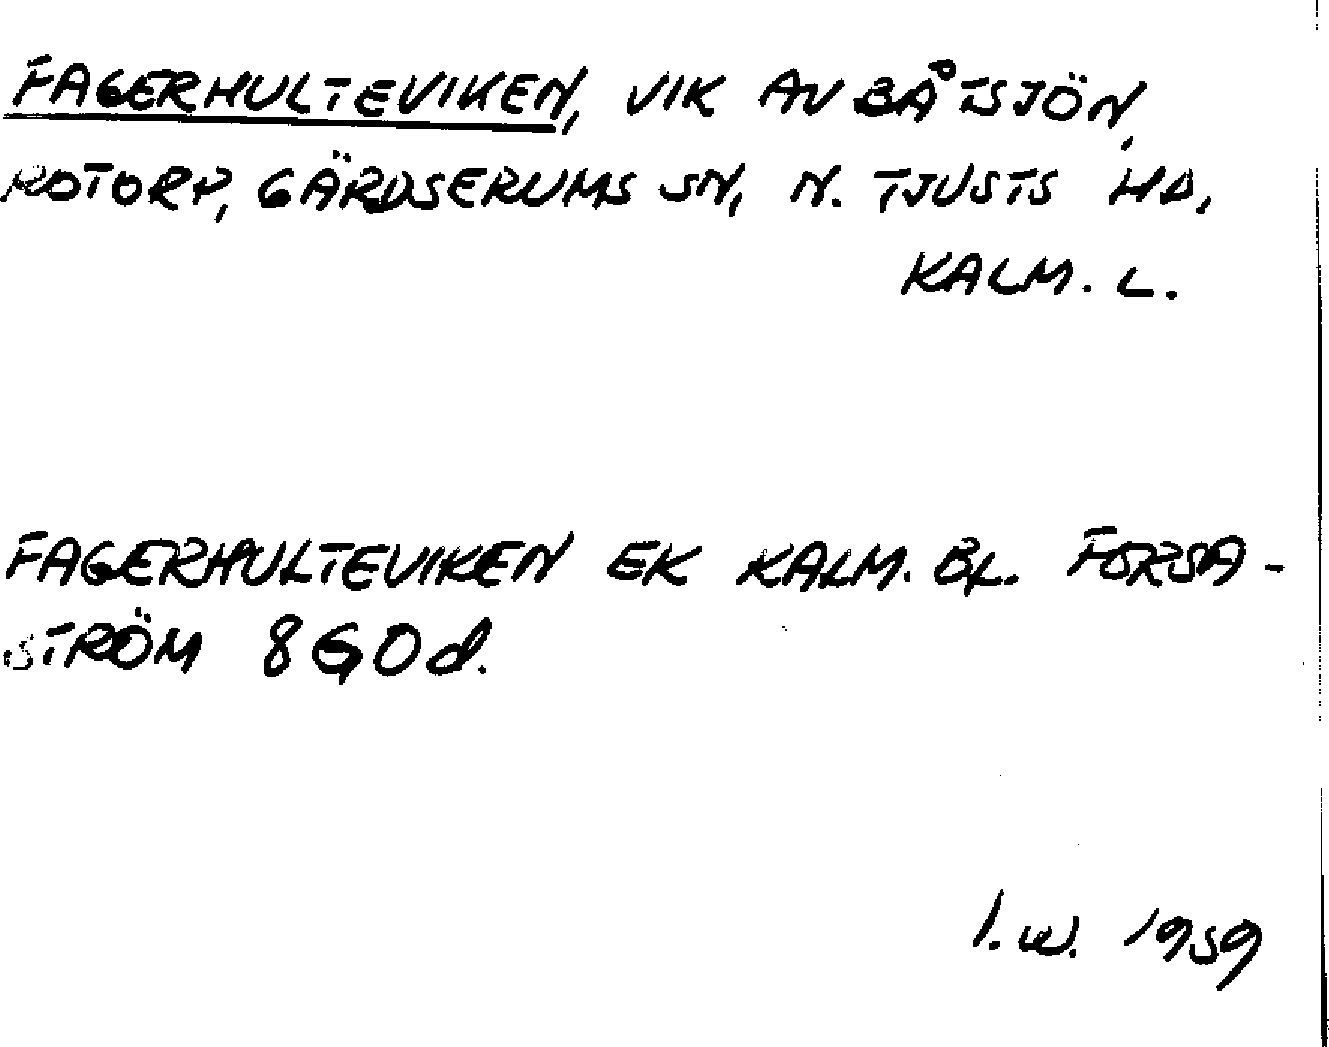 FAGERHULTEVIKEN, VIK AV BÅTSJÖN,
ROTORP, GÄRDSERUMS SN, N. TJUSTS HD,
KALM. L.
FAGERHULTEVIKEN EK KALM. BL. FORSA-
STRÖM 8G0d.
I.W. 1959